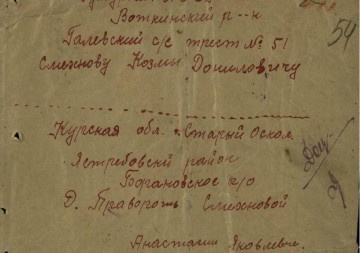 54
Воткинский р--н
Галевский с/с трест № 51
Смехнову Козмы Даниловичу
Курская обл. г. Старый Оскол
Ястребовский район
Богановское с/о
Д. Праворот Смехновой
Анастасии Яковлевне.